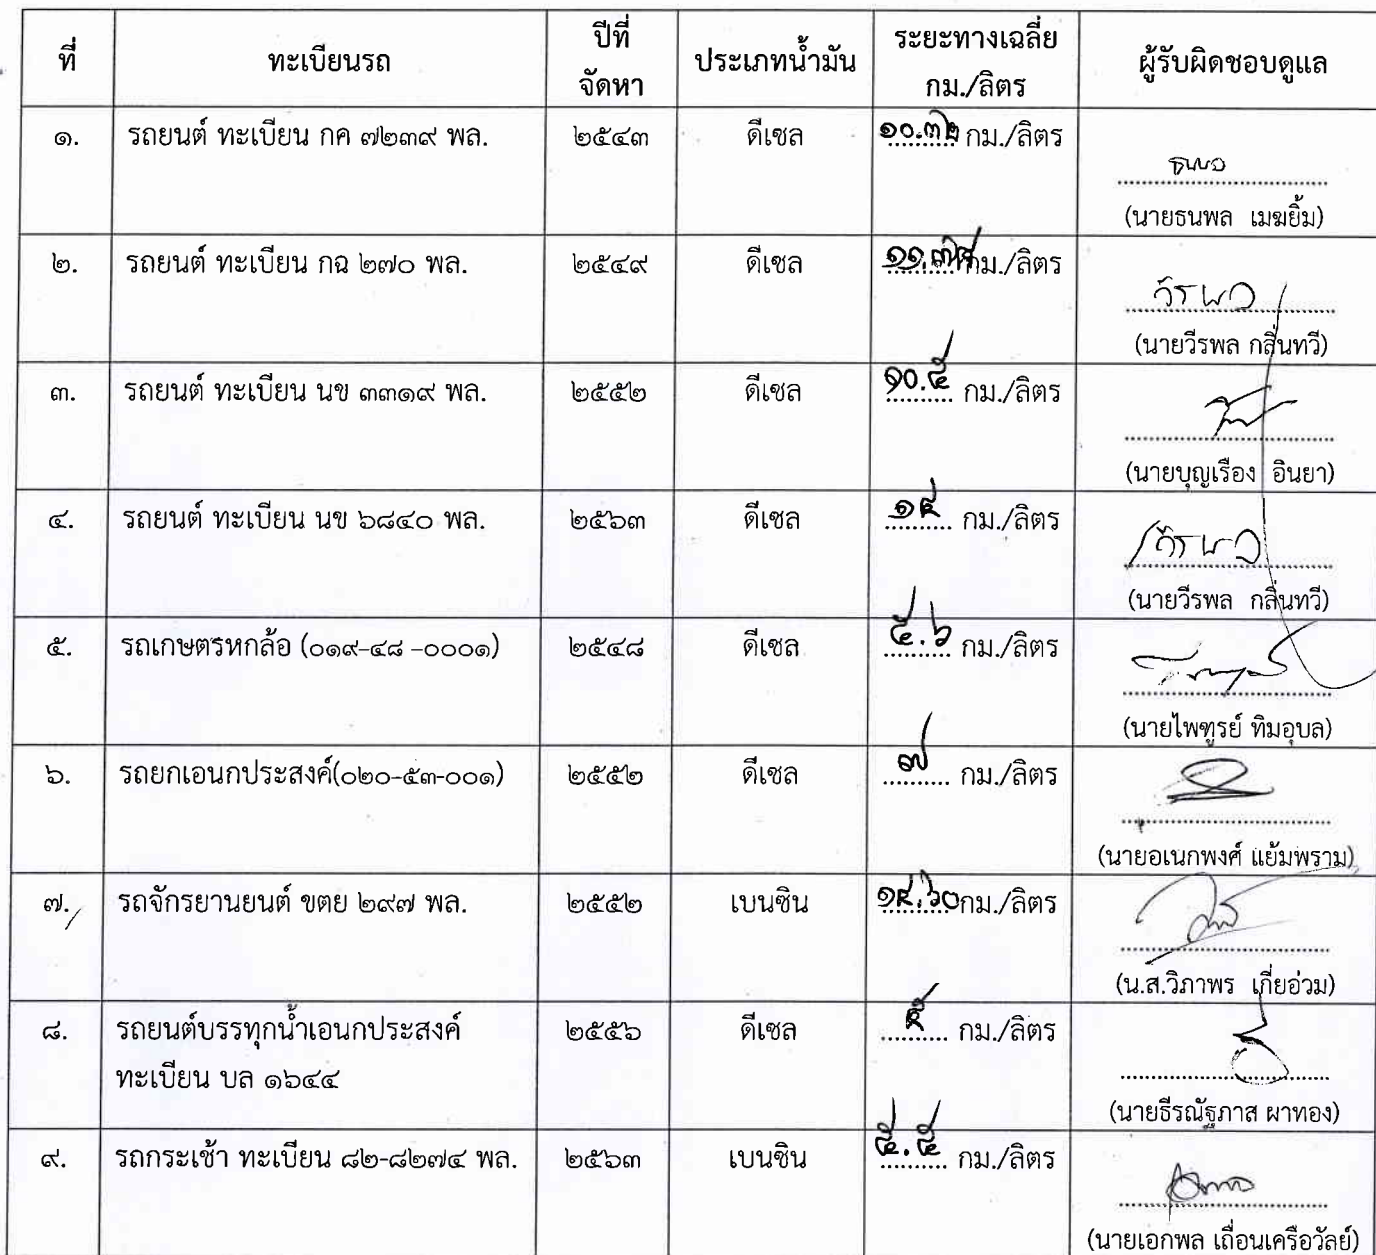 ที่ ทะเบียนรถ ปีที่จัดหา ประเภทน้ำมัน ระยะทางเฉลี่ย กม./ลิตร ผู้รับผิดชอบดูแล
๑. รถยนต์ ทะเบียน กค ๗๒๓๙ พล. ๒๕๔๓ ดีเซล ๑๐.๓๒ กม./ลิตร
(นายธนพล เมฆยิ้ม)
๒. รถยนต์ ทะเบียน กฉ ๒๗๐ พล. ๒๕๔๙ ดีเซล กม./ลิตร
วีรพล
(นายวีรพล กลิ่นทวี)
๓. รถยนต์ ทะเบียน นข ๓๓๑๙ พล. ๒๕๕๒ ดีเซล ๑๐.๕ กม./ลิตร
(นายบุญเรือง อินยา)
๔. รถยนต์ ทะเบียน นข ๖๘๔๐ พล. ๒๕๖๓ ดีเซล กม./ลิตร
วีรพล
(นายวีรพล กลิ่นทวี)
๕. รถเกษตรหกล้อ (๐๑๙-๔๘ -๐๐๐๑) ๒๕๔๘ ดีเซล ๕.๖ กม./ลิตร
(นายไพฑูรย์ ทิมอุบล)
๖. รถยกเอนกประสงค์(๐๒๐-๕๓-๐๐๑) ๒๕๕๒ ดีเซล ๗ กม./ลิตร
(นายอเนกพงศ์ แย้มพราม)
๗. รถจักรยานยนต์ ขตย ๒๙๗ พล. ๒๕๕๒ เบนซิน กม./ลิตร
(น.ส.วิภาพร เกี่ยอ่วม)
๘. รถยนต์บรรทุกน้ำเอนกประสงค์ ๒๕๕๖ ดีเซล กม./ลิตร
ทะเบียน บล ๑๖๔๔
(นายธีรณัฐภาส ผาทอง)
๙. รถกระเช้า ทะเบียน ๘๒-๘๒๗๔ พล. ๒๕๖๓ เบนซิน ๕.๕ กม./ลิตร
(นายเอกพล เถื่อนเครือวัลย์)